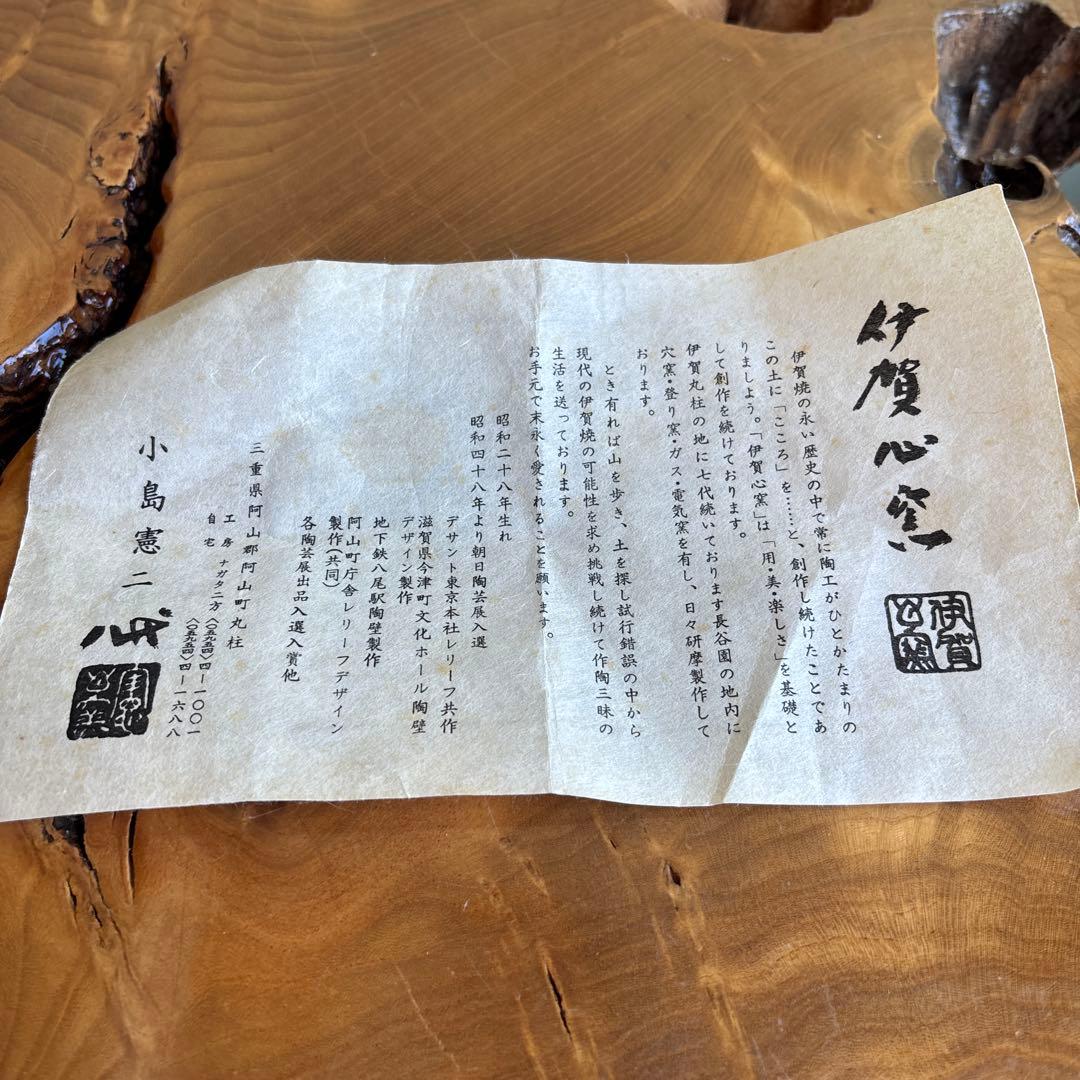 伊賀心窯
伊賀心窯
伊賀焼の永い歴史の中で常に陶工がひとかたまりの
この土に「こころ」を……と、創作し続けたことであ
りましよう。「伊賀心窯」は「用・美・楽しさ」を基礎と
して創作を続けております。
伊賀丸柱の地に七代続いております長谷園の地内に
穴窯・登り窯・ガス・電気窯を有し、日々研摩製作して
おります。
とき有れば山を歩き、土を探し試行錯誤の中から
現代の伊賀焼の可能性を求め挑戦し続けて作陶三昧の
生活を送っております。
お手元で末永く愛されることを願います。
昭和二十八年生れ
昭和四十八年より朝日陶芸展入選
デサント東京本社レリーフ共作
滋賀県今津町文化ホール陶壁
デザイン製作
地下鉄八尾駅陶壁製作
阿山町庁舎レリーフデザイン
製作(共同)
各陶芸展出品入選入賞他
三重県阿山郡阿山町丸柱
工房 ナガタニ方 〈〇五九五四〉四-一〇〇一
自宅 〈〇五九五四〉四-一六八八
小島憲二